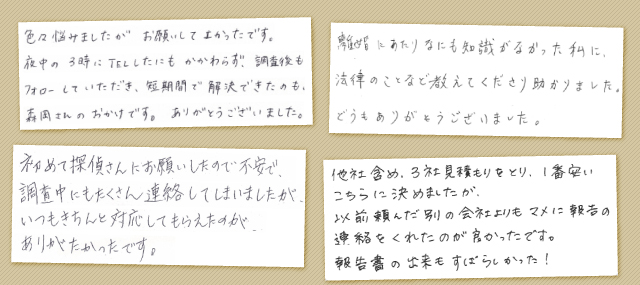 色々悩みましたが お願いして よかったです。
夜中の 3時に TELしたにもかかわらず、調査後も
フォローしていただき、短期間で解決できたのも、
森岡さんのおかげです。 ありがとうございました。
離婚にあたりなにも知識がなかった私に、
法律のことなど教えてくださり助かりました。
どうもありがとうございました。
初めて探偵さんにお願いしたので不安で、
調査中にもたくさん連絡してしまいましたが、
いつもきちんと対応してもらえたのが
ありがたかったです。
他社含め、3社見積もりをとり、1番安い
こちらに決めましたが、
以前頼んだ別の会社よりもマメに報告の
連絡をくれたのが良かったです。
報告書の出来もすばらしかった!